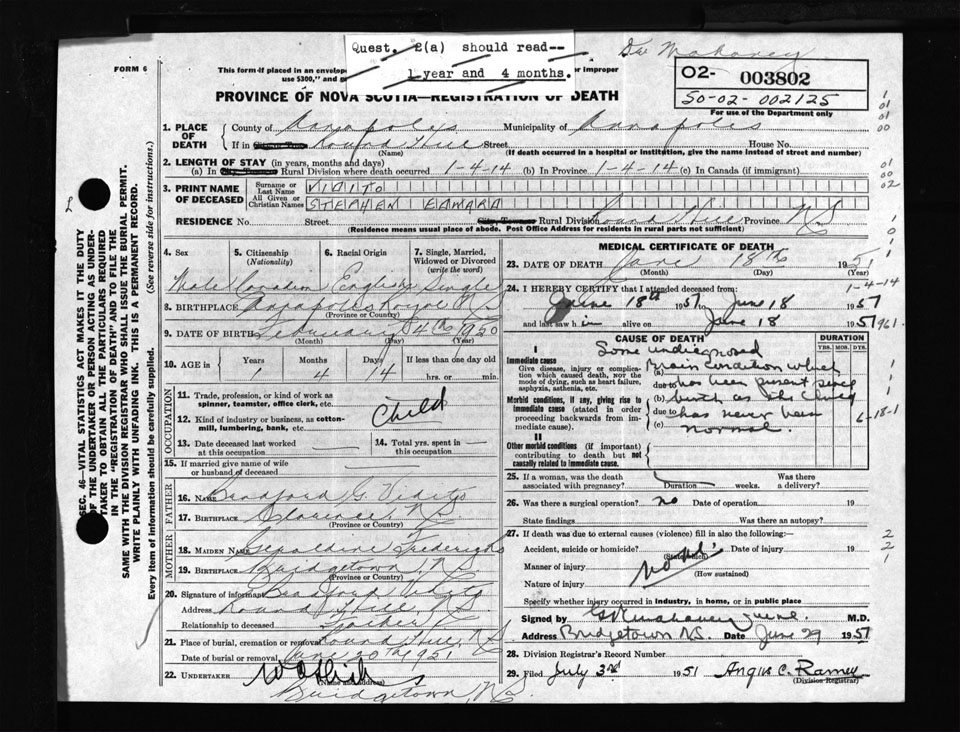 Quest. 2(a) should read--
1 year and 4 months.
Dr Mahaney
FORM 6
This form if placed in an envelope
or improper
use $300," and
O2- 003802
50-02-002125
For use of the Department only
PROVINCE OF NOVA SCOTIA—REGISTRATION OF DEATH
1. PLACE OF DEATH
County of Annapolis Municipality of Annapolis
If in Round Hill Street House No.
(Name) (If death occurred in a hospital or institution, give the name instead of street and number)
2. LENGTH OF STAY (in years, months and days)
(a) In Rural Division where death occurred 1-4-14 (b) In Province 1-4-14 (c) In Canada (if immigrant)
3. PRINT NAME OF DECEASED
Surname or Last Name VIDITO
All Given or Christian Names STEPHEN EDWARD
RESIDENCE No. Street City Town or Rural Division Round Hill Province NS
(Residence means usual place of abode. Post Office Address for residents in rural parts not sufficient)
4. Sex
5. Citizenship (Nationality)
6. Racial Origin
7. Single, Married, Widowed or Divorced (write the word)
Male Canadian English Single
8. BIRTHPLACE Annapolis Royal NS
(Province or Country)
9. DATE OF BIRTH February 4th 1950
(Month) (Day) (Year)
10. AGE in Years Months Days If less than one day old
1 4 14 hrs. or min.
OCCUPATION
11. Trade, profession, or kind of work as spinner, teamster, office clerk, etc.
12. Kind of industry or business, as cotton-mill, lumbering, bank, etc.
Child
13. Date deceased last worked at this occupation
14. Total yrs. spent in this occupation
15. If married give name of wife or husband of deceased
FATHER
16. NAME Bradford G. Vidito
17. BIRTHPLACE Clarence N.S
(Province or Country)
MOTHER
18. MAIDEN NAME Geraldine Fredericks
19. BIRTHPLACE Bridgetown, N.S.
(Province or Country)
20. Signature of informant Bradford Vidito
Address Round Hill, N.S.
Relationship to deceased Father
21. Place of burial, cremation or removal Round Hill, N.S
Date of burial or removal June 20th 1951
22. UNDERTAKER
(Name and address)
Bridgetown, N.S.
MEDICAL CERTIFICATE OF DEATH
23. DATE OF DEATH June 18th 1951
(Month) (Day) (Year)
24. I HEREBY CERTIFY that I attended deceased from:
June 18th 1951 to June 18 1951
and last saw him alive on June 18 1951
1-4-14
961
CAUSE OF DEATH
DURATION
YRS. MOS. DYS.
I
Immediate cause
Give disease, injury or complication which caused death, NOT the mode of dying, such as heart failure, asphyxia, asthenia, etc.
Morbid conditions, if any, giving rise to immediate cause (stated in order proceeding backwards from immediate cause).
II
Other morbid conditions (if important) contributing to death but not causally related to immediate cause.
Some undiagnosed
(a) Brain condition which
due to has been present since
(b) birth as the child
due to has never been
(c) normal.
6-18-1
25. If a woman, was the death associated with pregnancy? Duration weeks. Was there a delivery?
26. Was there a surgical operation? no Date of operation 19
State findings Was there an autopsy?
27. If death was due to external causes (violence) fill in also the following:—
Accident, suicide or homicide? Date of injury 19
(State which)
Manner of injury
(How sustained)
Nature of injury
Specify whether injury occurred in industry, in home, or in public place
Signed by M.D.
Address Bridgetown N.S. Date June 29 1951
28. Division Registrar's Record Number
29. Filed July 3rd 1951 Angus C. Ramey
(Division Registrar)
SEC. 46—VITAL STATISTICS ACT MAKES IT THE DUTY
OF THE UNDERTAKER OR PERSON ACTING AS UNDER-
TAKER TO OBTAIN ALL THE PARTICULARS REQUIRED
IN THE "REGISTRATION OF DEATH" AND TO FILE THE
SAME WITH THE DIVISION REGISTRAR WHO SHALL ISSUE THE BURIAL PERMIT.
WRITE PLAINLY WITH UNFADING INK. THIS IS A PERMANENT RECORD.
Every item of information should be carefully supplied. (See reverse side for instructions.)